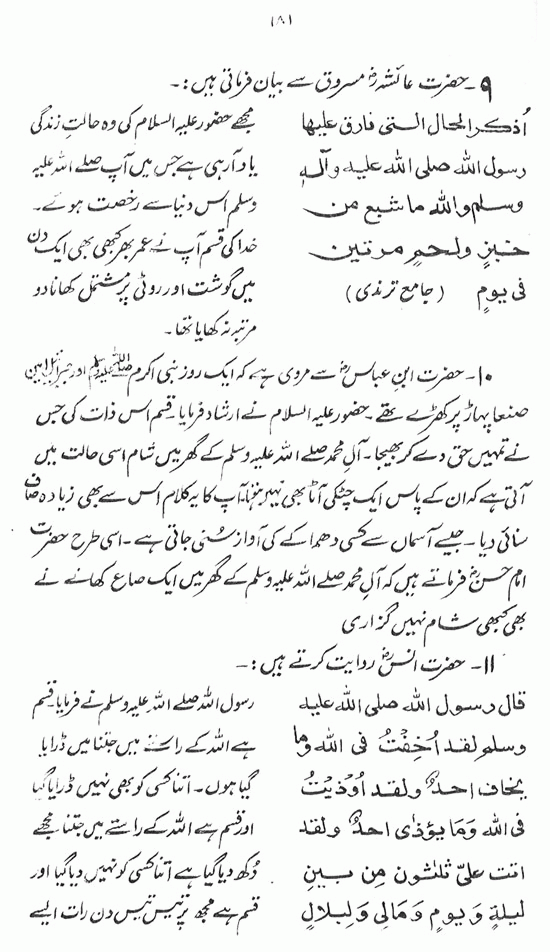 ۱۸۱
۹۔ حضرت عائشہؓ مسروق سے بیان فرماتی ہیں:۔
أذكر الحال التى فارق عليها
رسول الله صلى الله عليه وآله
وسلم والله ما شبع من
خبزٍ ولحمٍ مرتين
فى يومٍ (جامع ترمذی)
مجھے حضور علیہ السلام کی وہ حالتِ زندگی
یاد آرہی ہے جس میں آپ صلے اللہ علیہ
وسلم اس دنیا سے رخصت ہوئے۔
خدا کی قسم آپ نے عمر بھر کبھی بھی ایک دن
میں گوشت اور روٹی پر مشتمل کھانا دو
مرتبہ نہ کھایا تھا۔
۱۰۔ حضرت ابنِ عباسؓ سے مروی ہے کہ ایک روز نبی اکرم صلی اللہ علیہ وسلم اور جبرائیل امین
صفا پہاڑ پر کھڑے تھے۔ حضور علیہ السلام نے ارشاد فرمایا۔ قسم اس ذات کی جس
نے تمہیں حق دے کر بھیجا۔ آلِ محمد صلے اللہ علیہ وسلم کے گھر میں شام اسی حالت میں
آتی ہے کہ ان کے پاس ایک چٹکی آٹا بھی نہیں ہوتا۔ آپ کا یہ کلام اس سے بھی زیادہ صاف
سنائی دیا۔ جیسے آسماں سے کسی دھماکے کی آواز سُنی جاتی ہے۔ اسی طرح حضرت
امام حسنؓ فرماتے ہیں کہ آلِ محمد صلے اللہ علیہ وسلم کے گھر میں ایک صاع کھانے نے
بھی کبھی شام نہیں گزاری
۱۱۔ حضرت انسؓ روایت کرتے ہیں:۔
قال رسول الله صلى الله عليه
وسلم لقد أُخِفْتُ فى الله وما
يخاف احدٌ ولقد اُوذيتُ
فى الله وَمَا يؤذٰى احدٌ ولقد
اتت علىّ ثلٰثون مِن بينِ
ليلةٍ ويومٍ وَمَالِى وَلِبلالٍ
رسول اللہ صلے اللہ علیہ وسلم نے فرمایا۔ قسم
ہے اللہ کے راستے میں جتنا میں ڈرایا
گیا ہوں۔ اتنا کسی کو بھی نہیں ڈرایا گیا
اور قسم ہے اللہ کے راستے میں جتنا مجھے
دُکھ دیا گیا ہے اتنا کسی کو نہیں دیا گیا اور
قسم ہے مجھ پر تیس تیس دن رات ایسے